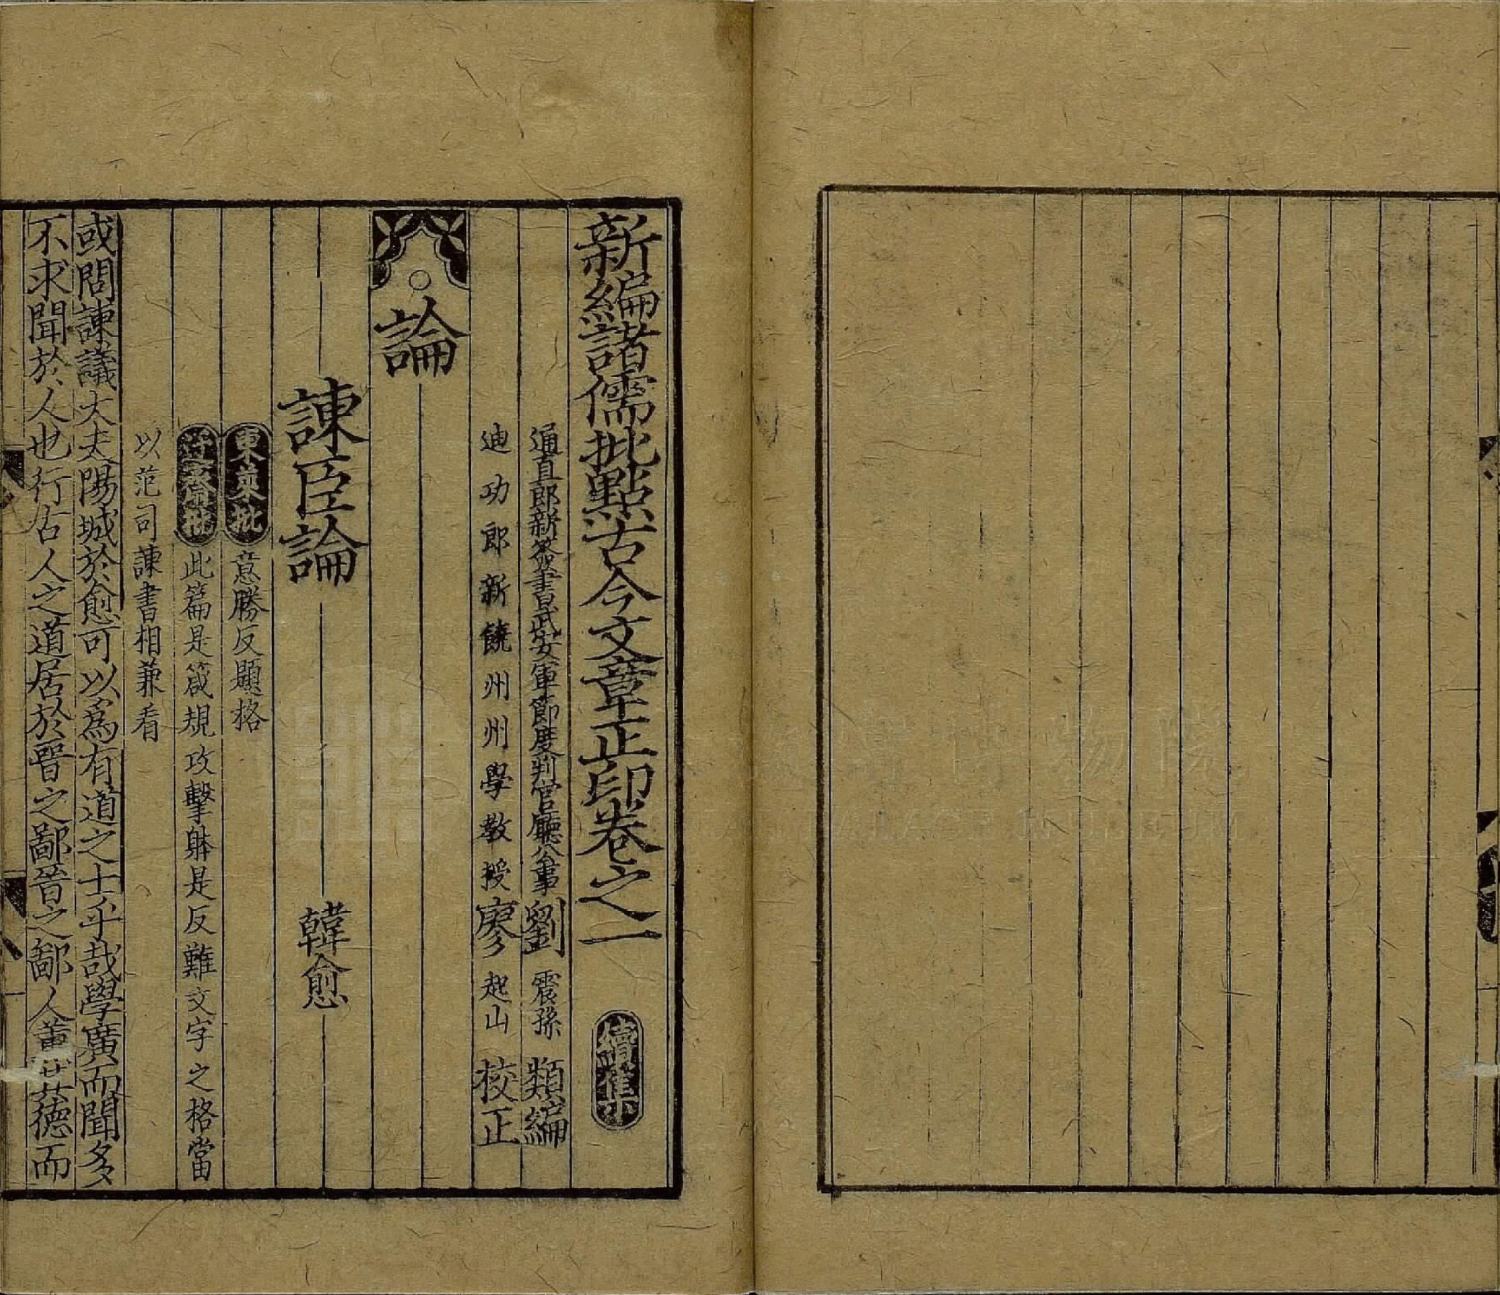 新編諸儒批點古今文章正印卷之一 續集
通直郎新簽書武安軍節度判官廳公事劉震孫類編
迪功郎新饒州州學教授廖起山校正
論
諫臣論 韓愈
東萊批 意勝反題格
迂齋批 此篇是箴規攻擊躰是反難文字之格當
以范司諫書相兼看
或問諫議大夫陽城於愈可以爲有道之士乎哉學廣而聞多
不求聞於人也行古人之道居於晉之鄙晉之鄙人薰其德而